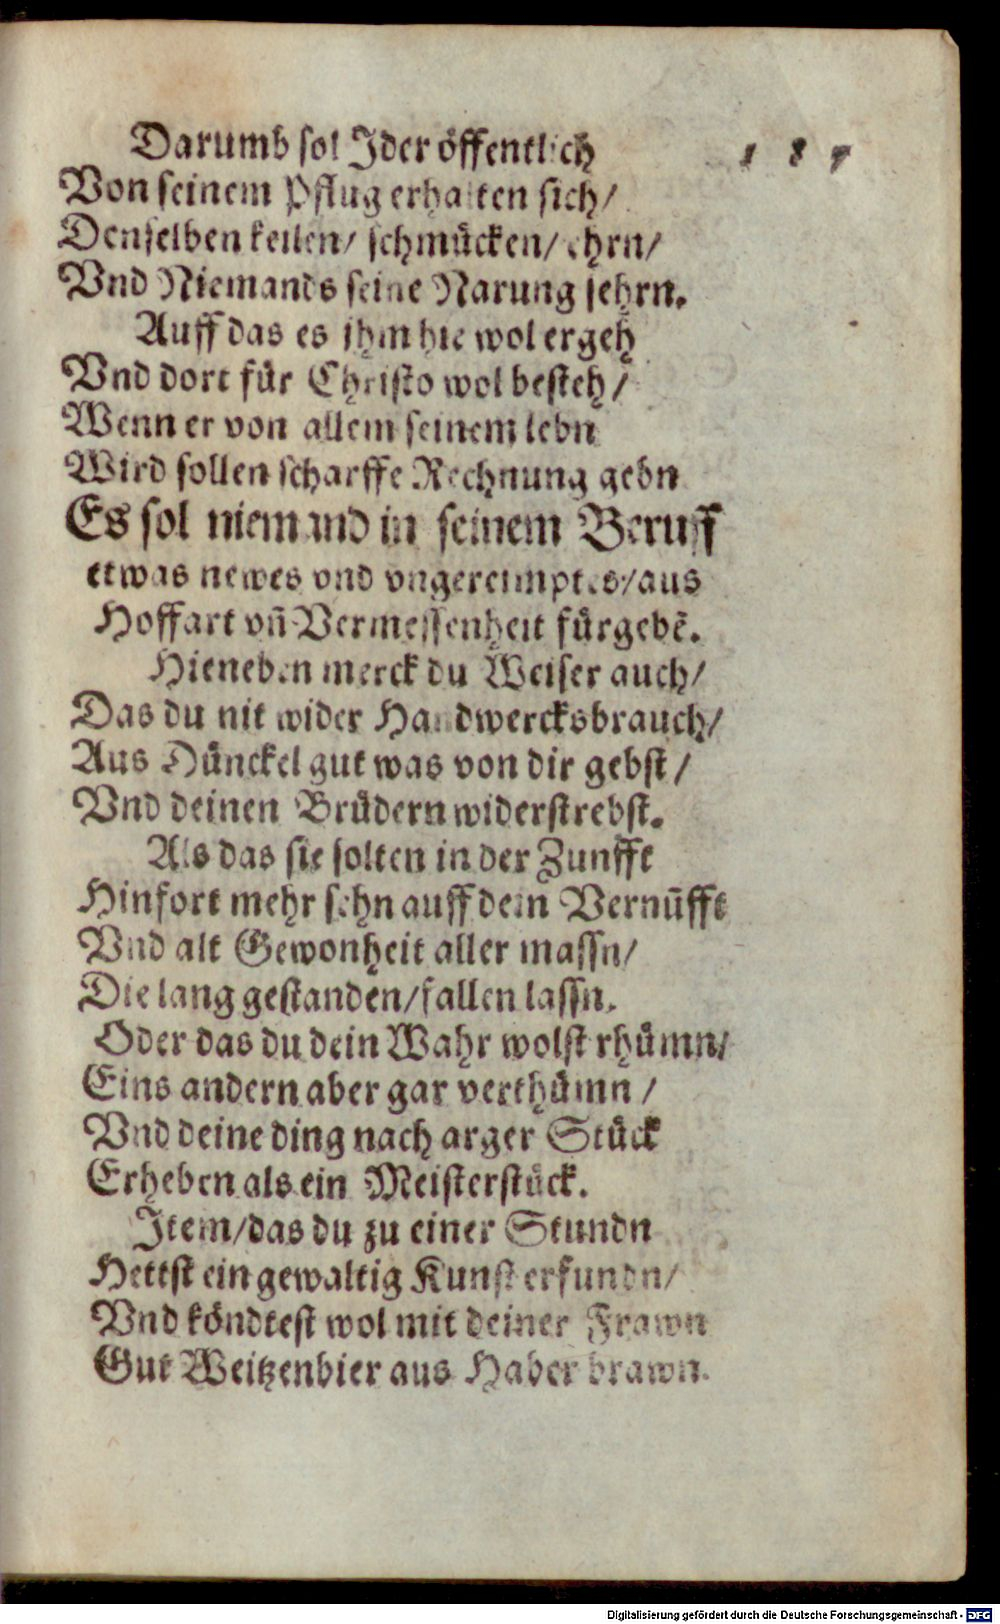 Darumb sol Jder öffentlich
187
Von seinem Pflug erhalten sich/
Denselben keilen/ schmücken/ ehrn/
Vnd Niemands seine Narung sehrn.
Auff das es ihm hie wol ergeh
Vnd dort für Christo wol besteh/
Wenn er von allem seinem lebn
Wird sollen scharffe Rechnung gebn
Es sol niemand in seinem Beruff
etwas newes vnd vngereimptes/aus
Hoffart vñ Vermessenheit fürgebẽ.
Hieneben merck du Weiser auch/
Das du nit wider Handwercksbrauch/
Aus Dünckel gut was von dir gebst/
Vnd deinen Brüdern widerstrebst.
Als das sie solten in der Zunfft
Hinfort mehr sehn auff dein Vernũfft
Vnd alt Gewonheit aller massn/
Die lang gestanden/fallen lassn.
Oder das du dein Wahr wolst rhümn/
Eins andern aber gar verthümn/
Vnd deine ding nach arger Stück
Erheben als ein Meisterstück.
Jtem/das du zu einer Stundn
Hettst ein gewaltig Kunst erfundn/
Vnd köndtest wol mit deiner Frawn
Gut Weitzenbier aus Haber brawn.
Digitalisierung gefördert durch die Deutsche Forschungsgemeinschaft - DFG